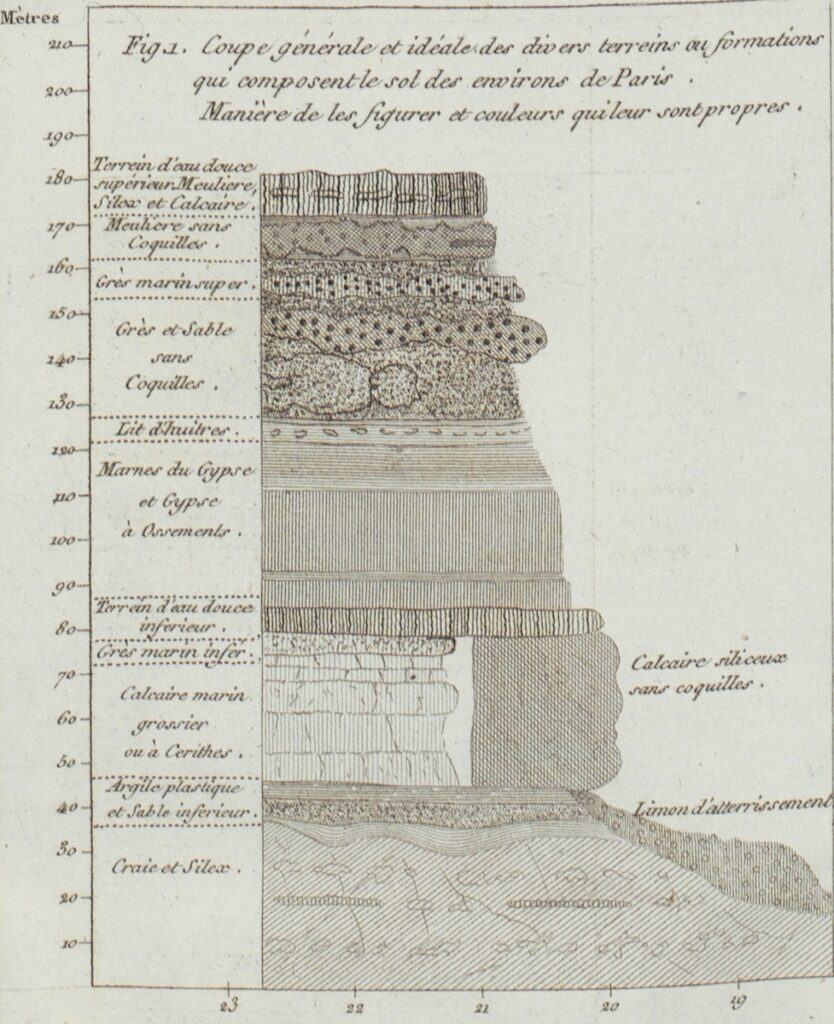 Mètres
Fig.1. Coupe générale et idéale des divers terreins ou formations
qui composent le sol des environs de Paris .
Manière de les figurer et couleurs qui leur sont propres .
210
200
190
180
170
160
150
140
130
120
110
100
90
80
70
60
50
40
30
20
10
Terrein d'eau douce
supérieur Meuliere,
Silex et Calcaire .
Meulière sans
Coquilles .
Grès marin super .
Grès et Sable
sans
Coquilles .
Lit d'huitres .
Marnes du Gypse
et Gypse
à Ossements .
Terrein d'eau douce
inferieur .
Grès marin infér.
Calcaire marin
grossier
ou à Cerithes .
Argile plastique
et Sable inférieur .
Craie et Silex .
Calcaire siliceux
sans coquilles .
Limon d'atterrissement
23 22 21 20 19